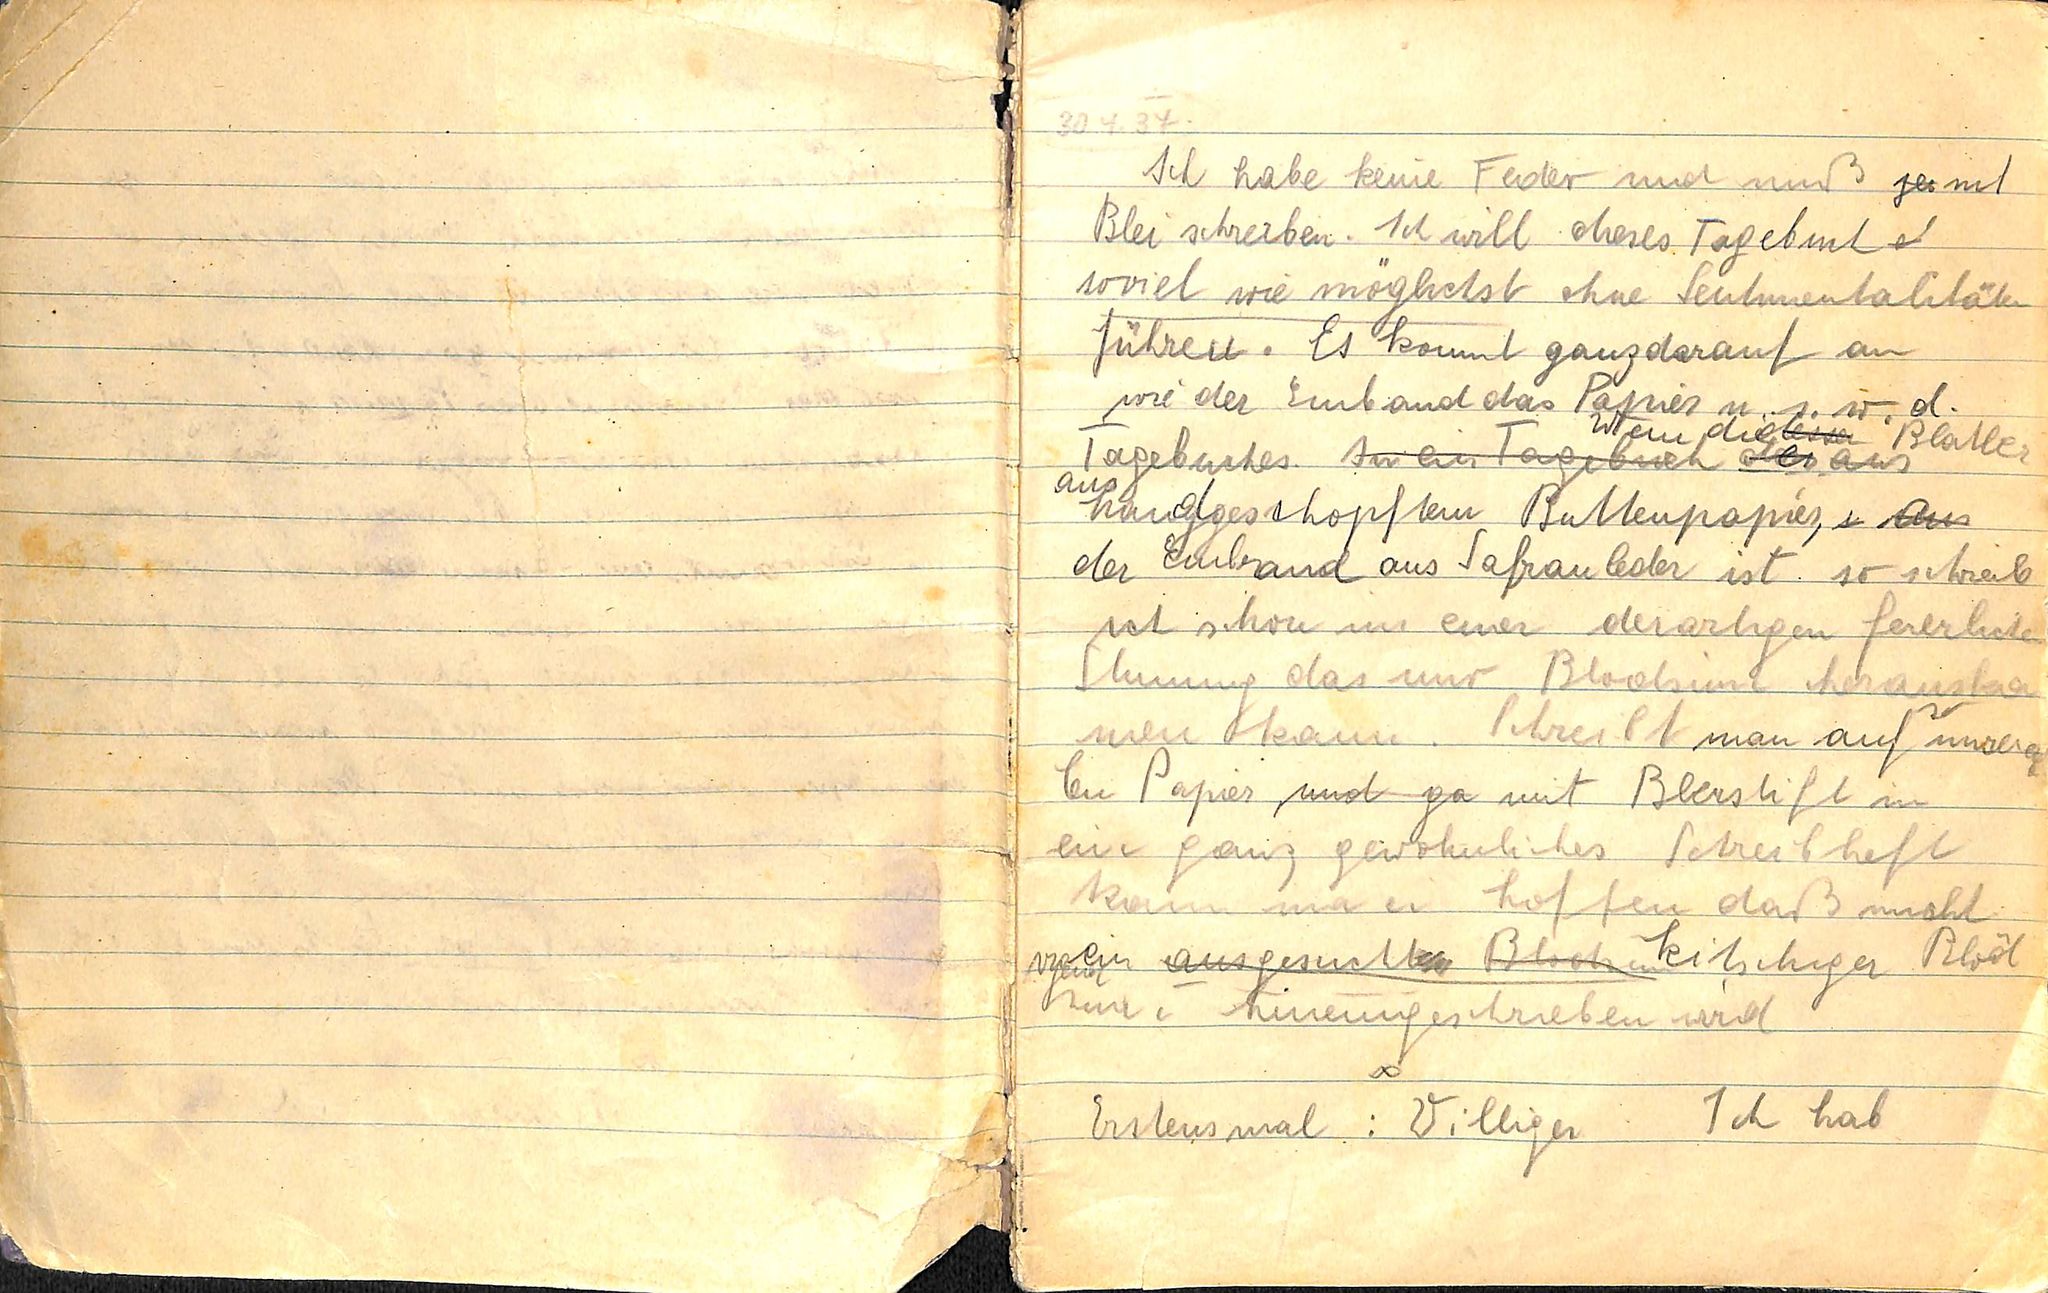 30.4.34.
Ich habe keine Feder und muß mit
Blei schreiben. Ich will dieses Tagebuch
soviel wie möglichst ohne Sentimentalitäten
führen. Es kommt ganz darauf an
wie der Einband das Papier u. s. w. d.
Wenn die Blätter
Tagebuches. In ein Tagebuch des aus
aus
handgeschopftem Buttenpapier, aus
der Einband aus Safranleder ist so schreib
ich schon in einer derartigen feierlichen
Stimmung das nur Blodsinn herauskom
men kann. Schreibt man auf
ten Papier und ga mit Bleistift in
ein ganz gewohnliches Schreibheft
kann man hoffen daß nicht
ein ausgesuchter Blodsinn kitschiger Blöd
sinn hineingeschrieben wird
Erstensmal : Villiger Ich hab